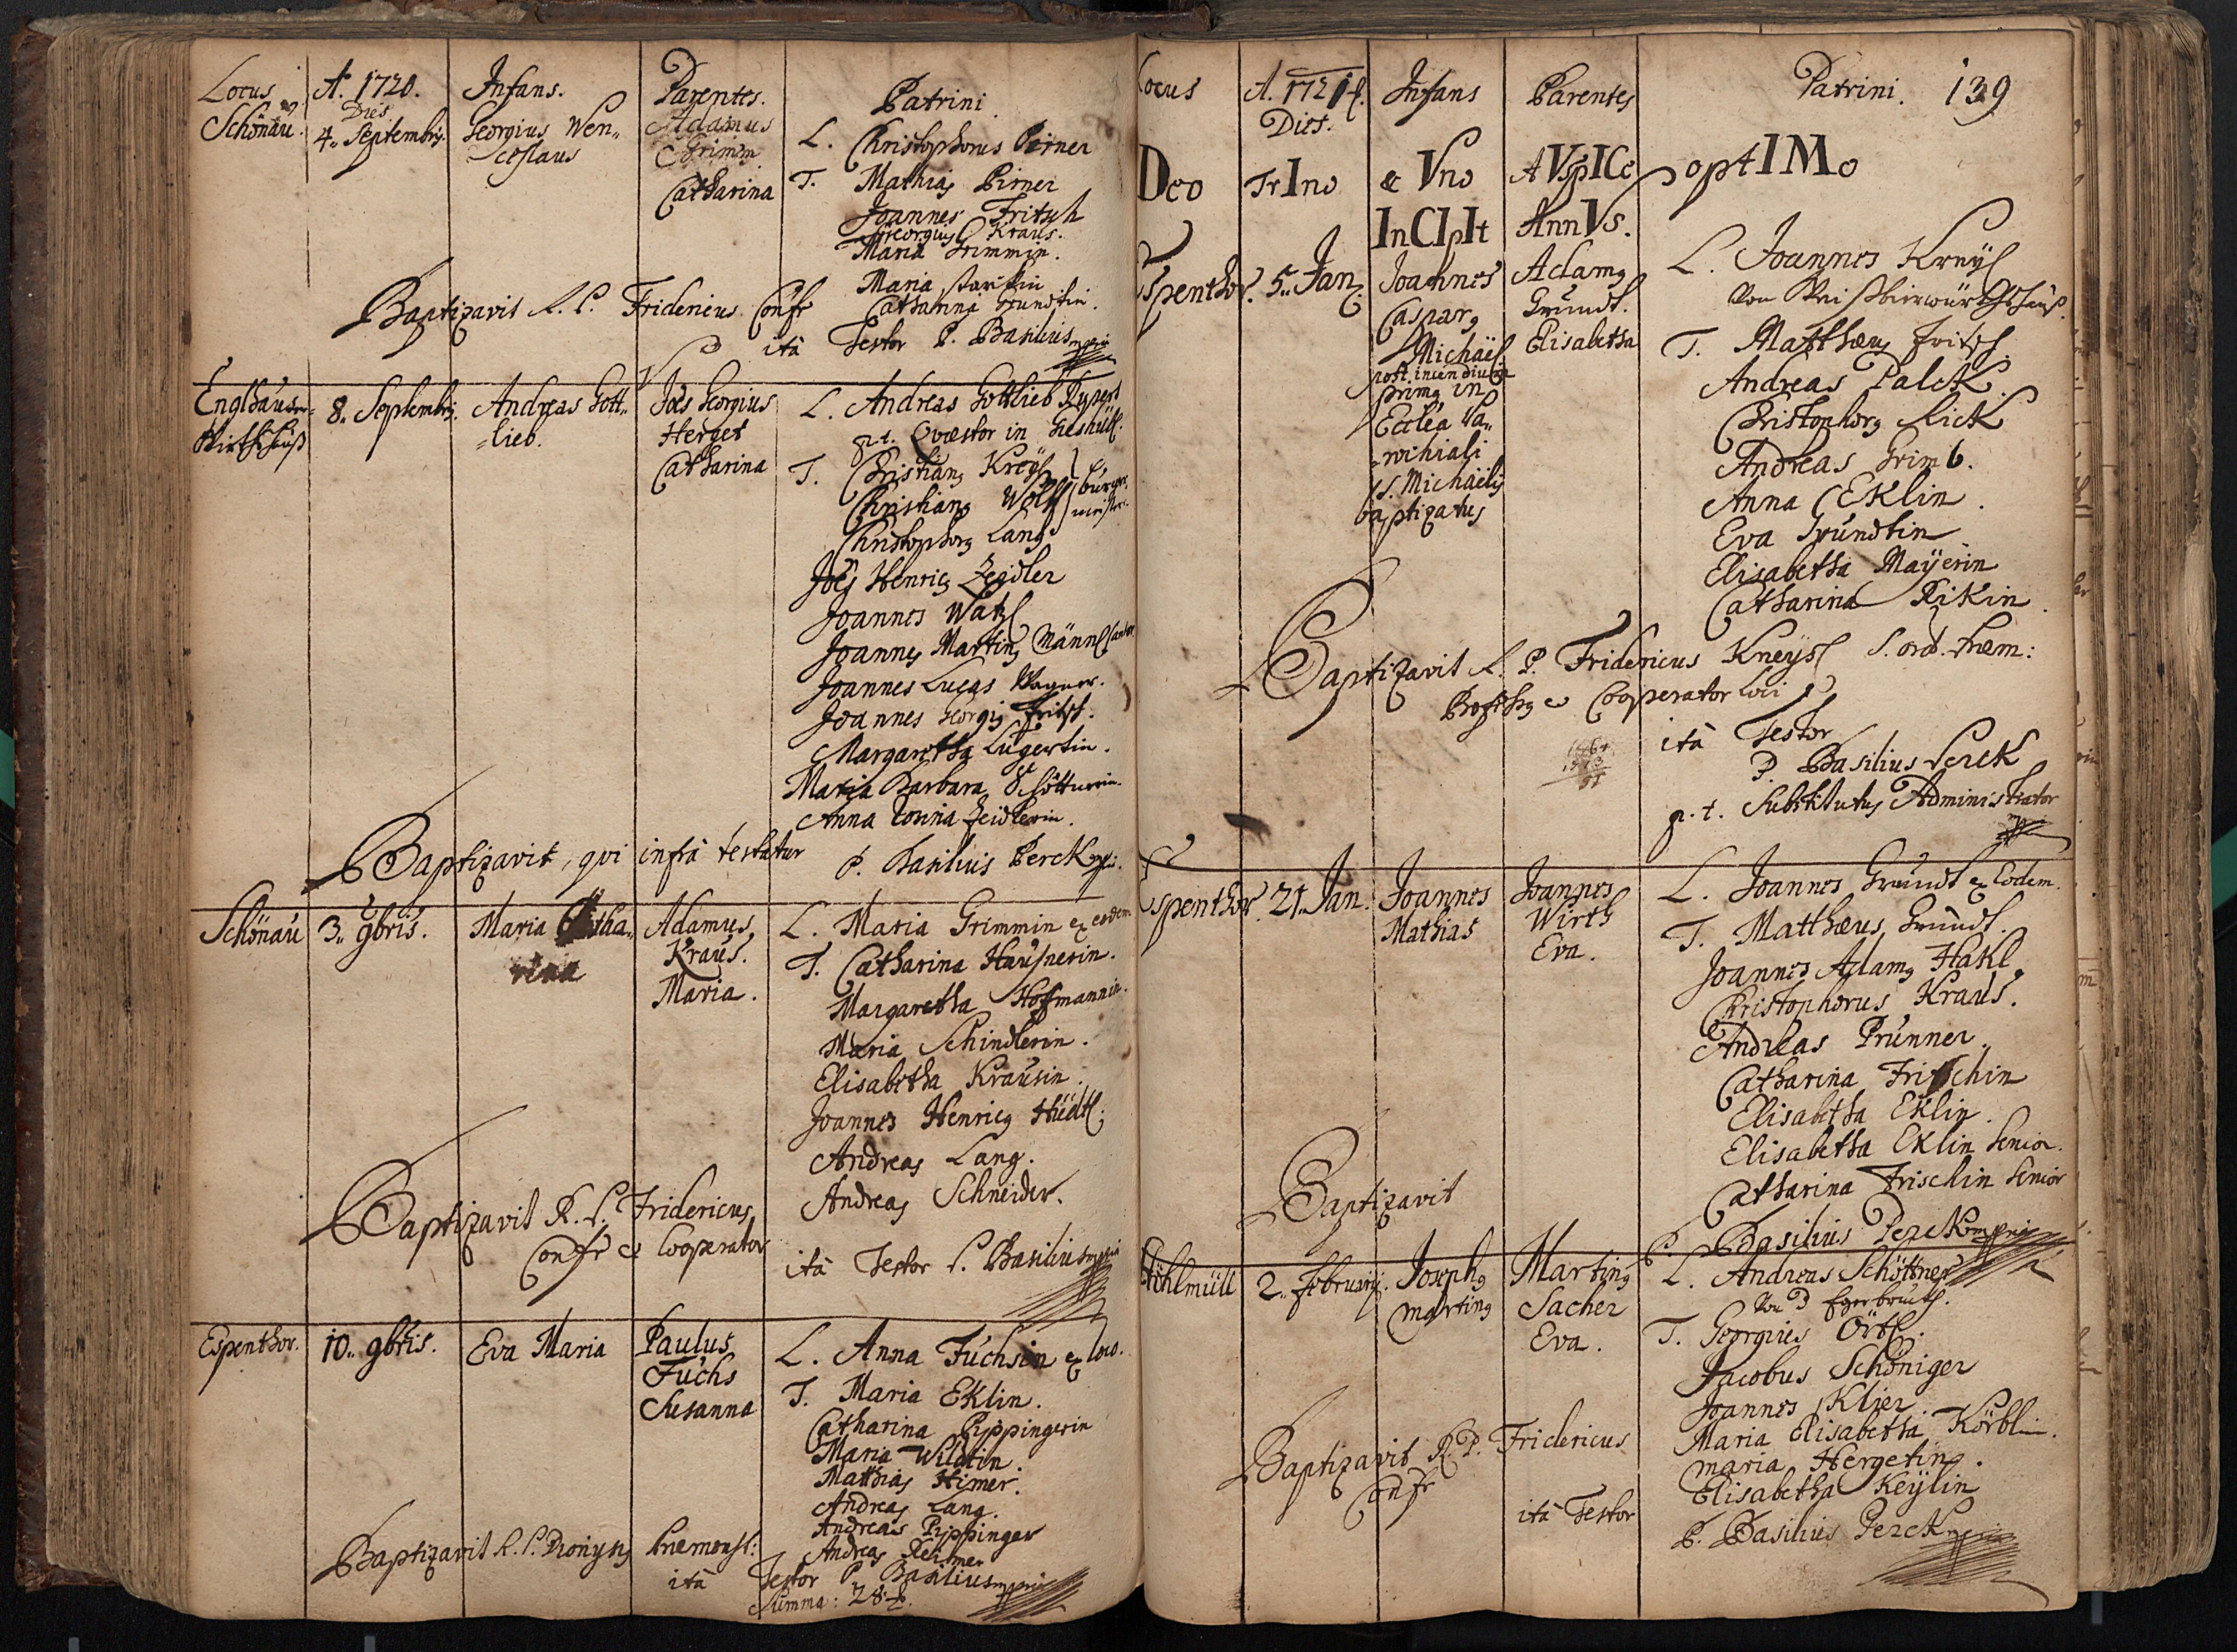 Locus A. 1720. Infans. Parentes. Patrini
Dies
Schönau. 4. Septembris. Georgius Wen=
=ceslaus
Adamus
Grimm
Catharina
L. Christophorus Pirner
T. Mathias Pirner
Joannes Fritsch
Georgius Kraus.
Maria Grimmin.
Maria
Catharina Grundtin.
Baptizavit R. P. Fridericus Confr
ita Testor P. Basilius mpria
Englhaüser
Wirthshauß
8. Septembris. Andreas Gott=
=lieb.
Joes Georgius
Herget
Catharina
L. Andreas Gottlieb Rupert
p.t. Quæstor in
T. Christiang Kreysl
Christiang Wolff } burger=
meister.
Christophorg Lang
Joes Henricg Zeidler
Joannes Watzl
Joannes Marting Männl Cantor
Joannes Lucas Wagner.
Joannes Georgig Fritsch.
Margaretha Lugertin.
Maria Barbara Schöttnerin.
Anna Zeidlerin.
Baptizavit, qui infrà testatur
P. Basilius Perck mpr.
Schönau 3. 9bris. Maria Catha=
rina
Adamus
Kraus.
Maria.
L. Maria Grimmin ex eodem
T. Catharina Hausnerin.
Margaretha Hoffmannin.
Maria Schindlerin.
Elisabetha Krausin.
Joannes Henricg Hüetl.
Andreas Lang.
Andreas Schneider.
Baptizavit R. P. Fridericus
Confr & Cooperator
ita Testor P. Basilius mpria
Espenthor. 10. 9bris. Eva Maria
Paulus
Fuchs
Susanna
L. Anna Fuchsin ex loco.
T. Maria Eklin.
Catharina Pippingerin
Maria Wildtin.
Matthias Himer.
Andreas Lang.
Andreas Pippinger
Andreas
Baptizavit R. P. Dionysg Præmonst:
ita Testor P. Basilius mpria
Summa: 28
Locus A. 1721 Infans Parentes Patrini. 139
Dies.
Deo TrIno & Vno AVspICe optIMo
InCIpIt AnnVs.
Espenthor. 5. Jan.
Joannes
Casparg
Michaël
post incendium
primg in
Ecclea Pa=
=rochiali
S. Michaëlis
baptizatus
Adamg
Grundt.
Elisabetha
L. Joannes Kreysl
Von
T. Matthæus Fritsch.
Andreas Palck.
Christophorg Rick
Andreas Grimb.
Anna Eklin.
Eva Grundtin
Elisabetha Mayerin
Catharina Rikin.
Baptizavit R. P. Fridericus Kneysl S. ord. Præm:
Professg & Cooperator loci
ità Testor
P. Basilius Perck
p. t. Substitutus Administrator
mpria
Espenthor. 21. Jan.
Joannes
Mathias
Joannes
Wirth
Eva.
L. Joannes Grundt ex eodem.
T. Matthæus Grundt.
Joannes Adamg Hakl
Christophorus Kraus.
Andreas Prunner.
Catharina Fritschin
Elisabetha Eklin.
Elisabetha Eklin Senior.
Catharina Frischin Senior
Baptizavit
P. Basilius Perck mpria
2. februarij.
Josephg
Marting
Marting
Sacher
Eva.
L. Andreas Schöttner
Von d Egerbruckh.
T. Georgius Örtl.
Jacobus Schöniger
Joannes Klier.
Maria Elisabetha Körblin.
Maria Hergetin.
Elisabetha Keylin
Baptizavit R. P. Fridericus
Confr
ità Testor
P. Basilius Perck mpria